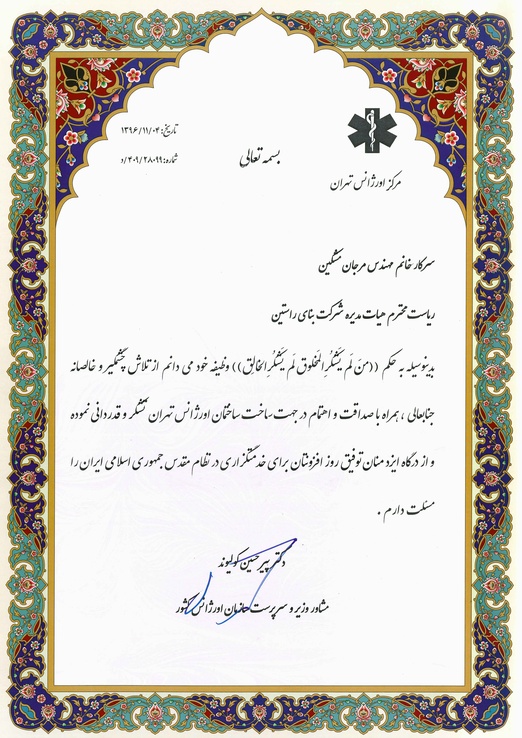 تاریخ: ۱۳۹۶/۱۱/۰۴
بسمه تعالی
شماره: ۴۰۹/۲۸۰۹۹/د
مرکز اورژانس تهران
سرکار خانم مهندس مرجان مشکین
ریاست محترم هیات مدیره شرکت بنای راستین
بدینوسیله به حکم ((من لَم یَشکُرِ المَخلوق لَم یَشکُرِ الخالِق)) وظیفه خود می دانم از تلاش چشمگیر و خالصانه
جنابعالی ، همراه با صداقت و اهتمام در جهت ساخت ساختمان اورژانس تهران تشکر و قدردانی نموده
و از درگاه ایزد منان توفیق روز افزونتان برای خدمتگزاری در نظام مقدس جمهوری اسلامی ایران را
مسئلت دارم .
دکتر پیرحسین کولیوند
مشاور وزیر و سرپرست سازمان اورژانس کشور